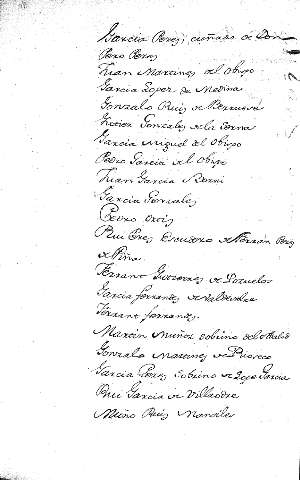 Garcia Perez, cuñado de Don
Pero Perez
Juan Martinez del Obispo
Garcia Lopez de Medina
Gonzalo Ruiz de
Gonzalez de la Serna
Garcia Miguel del Obispo
Pedro Garcia del Obispo
Juan Garcia
Garcia Gonzalez
Pedro Ortiz
Rui Perez Escudero de Ferran Perez
de Piña
Ferrant Gutierrez de Pozuelos
Garcia ferrandez de
Ferrant ferrandez
Martin Muñoz sobrino del Abbad
Gonzalo Martinez de
Garcia Perez sobrino de Lope Garcia
Rui Garcia de
Muño Ruiz